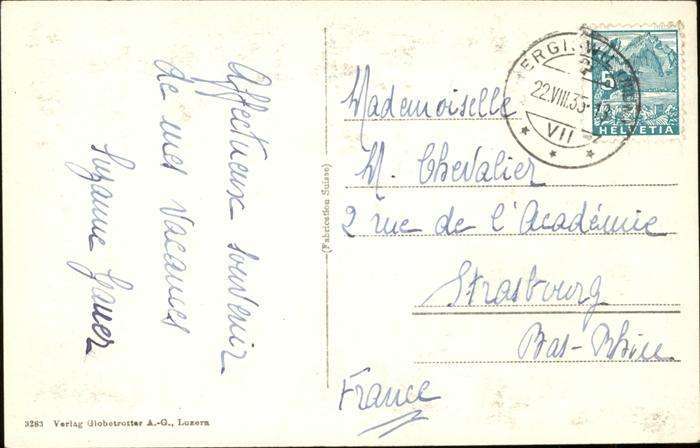 Affectueux souvenir
de mes vacances
Suzanne
(Fabrication Suisse)
22.VIII.35
VII
5
HELVETIA
Mademoiselle
M. Chevalier
2 rue de l'Académie
Strasbourg
Bas-Rhin
France
3283 Verlag Globetrotter A.-G., Luzern